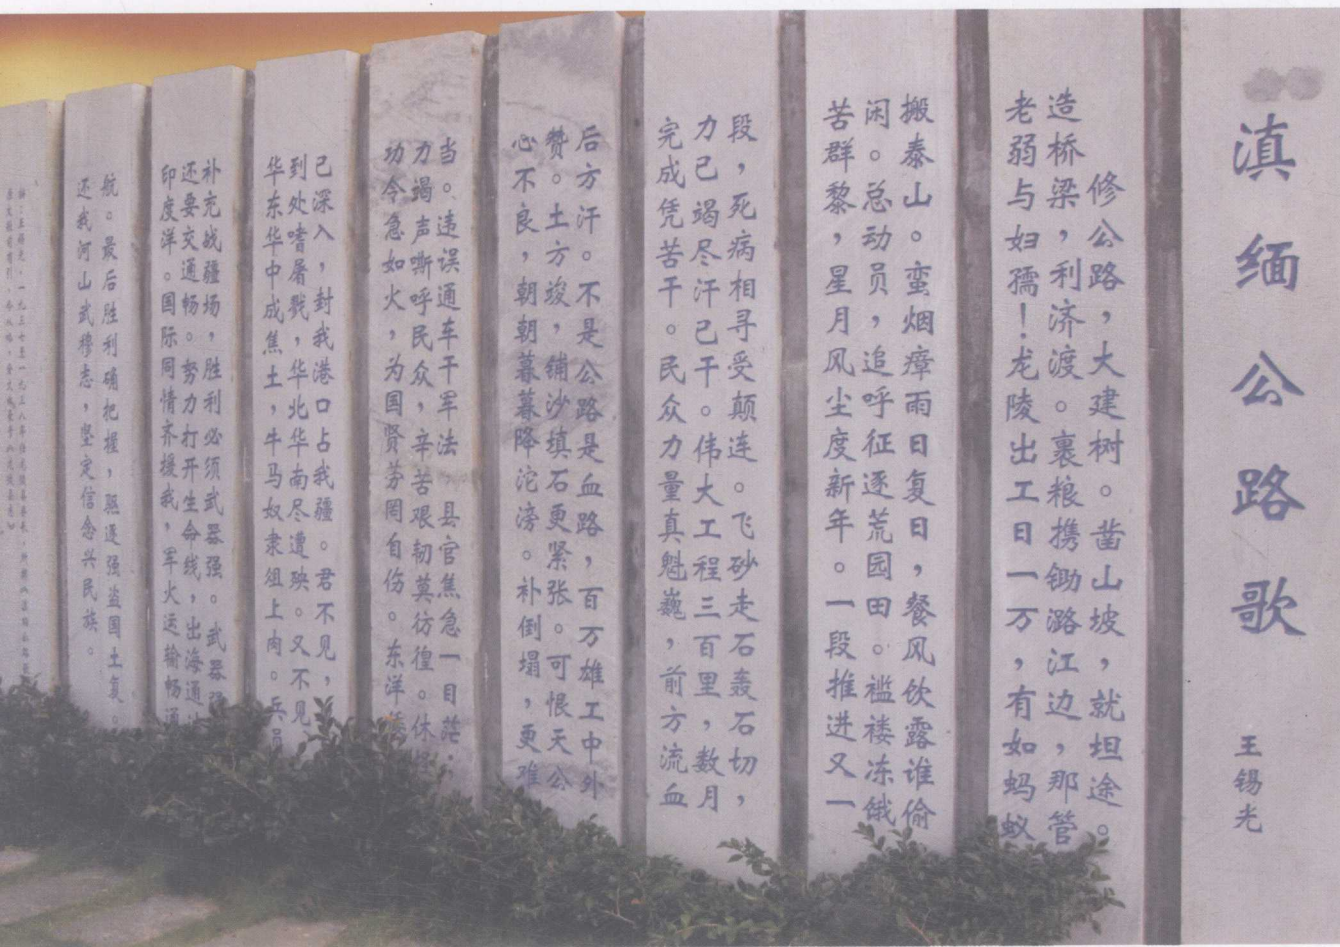 滇缅公路歌
王锡光
修公路，大建树。凿山坡，就坦途。
造桥梁，利济渡。裹粮携锄潞江边，那管
老弱与妇孺！龙陵出工日一万，有如蚂蚁
搬泰山。蛮烟瘴雨日复日，餐风饮露谁偷
闲。总动员，追呼征逐荒园田。褴褛冻饿
苦群黎，星月风尘度新年。一段推进又一
段，死病相寻受颠连。飞砂走石轰石切，
力已竭尽汗已干。伟大工程三百里，数月
完成凭苦干。民众力量真魁巍，前方流血
后方汗。不是公路是血路，百万雄工中外
赞。土方竣，铺沙填石更紧张。可恨天公
心不良，朝朝暮暮降沱滂。补倒塌，更难
当。违误通车干军法，县官焦急一目茫。
力竭声嘶呼民众，辛苦艰韧莫彷徨。休
功令急如火，为国贤劳罔自伤。东洋
已深入，封我港口占我疆。君不见，
到处嗜屠戮，华北华南尽遭殃。又不见
华东华中成焦土，牛马奴隶俎上肉。兵员
补充战疆场，胜利必须武器强。武器强
还要交通畅。努力打开生命线，出海通
印度洋。国际同情齐援我，军火运输畅通
航。最后胜利确把握，驱逐强盗国土复。
还我河山武穆志，坚定信念兴民族。